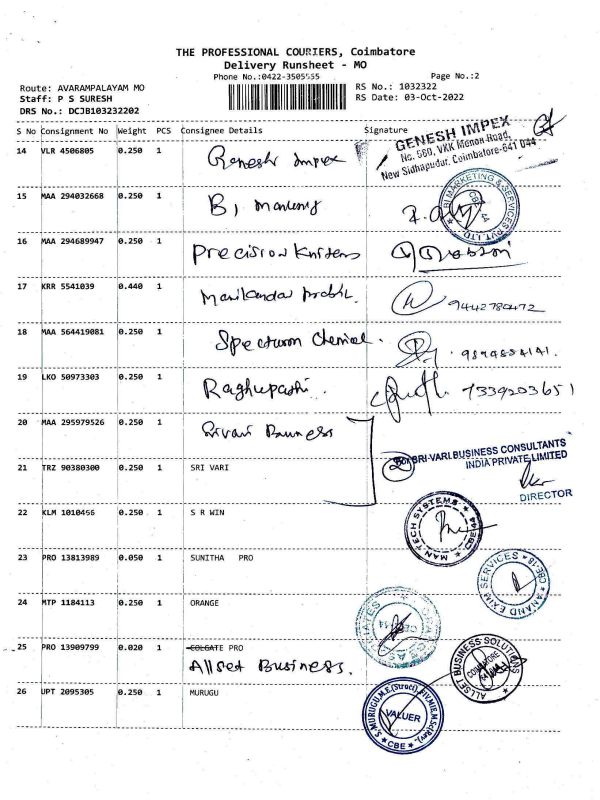 THE PROFESSIONAL COURIERS, Coimbatore
Delivery Runsheet - MO
Phone No.:0422-3505555 Page No.:2
Route: AVARAMPALAYAM MO RS No.: 1032322
Staff: P S SURESH RS Date: 03-Oct-2022
DRS No.: DCJB103232202
S No Consignment No Weight PCS Consignee Details Signature
14 VLR 4506805 0.250 1 Genesh Impex
GENESH IMPEX
No. 560, VKK Menon Road,
New Sidhapudur, Coimbatore-641 044
15 MAA 294032668 0.250 1 B,
BI MARKETING & SERVICES PVT LTD
16 MAA 294689947 0.250 1 Precision Knitters
17 KRR 5541039 0.440 1 Manikandan 9442780472
18 MAA 564419081 0.250 1 Spectrum Chemical. 9894884141.
19 LKO 50973303 0.250 1 Raghupathi. 7339203651
20 MAA 295979526 0.250 1 Srivari Business
For SRI VARI BUSINESS CONSULTANTS
INDIA PRIVATE LIMITED
21 TRZ 90380300 0.250 1 SRI VARI 2
DIRECTOR
22 KLM 1010456 0.250 1 S R WIN
MAN TECH SYSTEMS
23 PRO 13813989 0.050 1 SUNITHA PRO
ANAND EXIM SERVICES CBE-18
24 MTP 1184113 0.250 1 ORANGE
25 PRO 13909799 0.020 1 COLGATE PRO
Allset Business.
ALLSET BUSINESS SOLUTIONS
COIMBATORE
26 UPT 2095305 0.250 1 MURUGU
S.MURUGU,M.E.(Struct)
VALUER
CBE